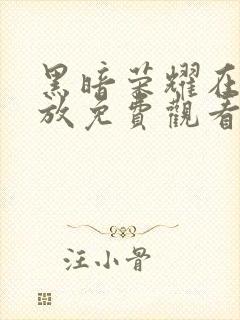 黑暗荣耀在
放免費觀看
汪小骨